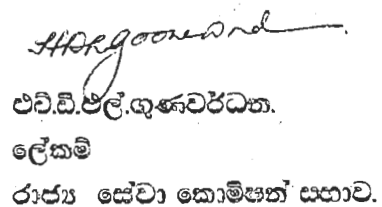 එච්.ඩී.එල්.ගුණවර්ධන.
ලේකම්
රාජ්‍ය සේවා කොමිෂන් සභාව.